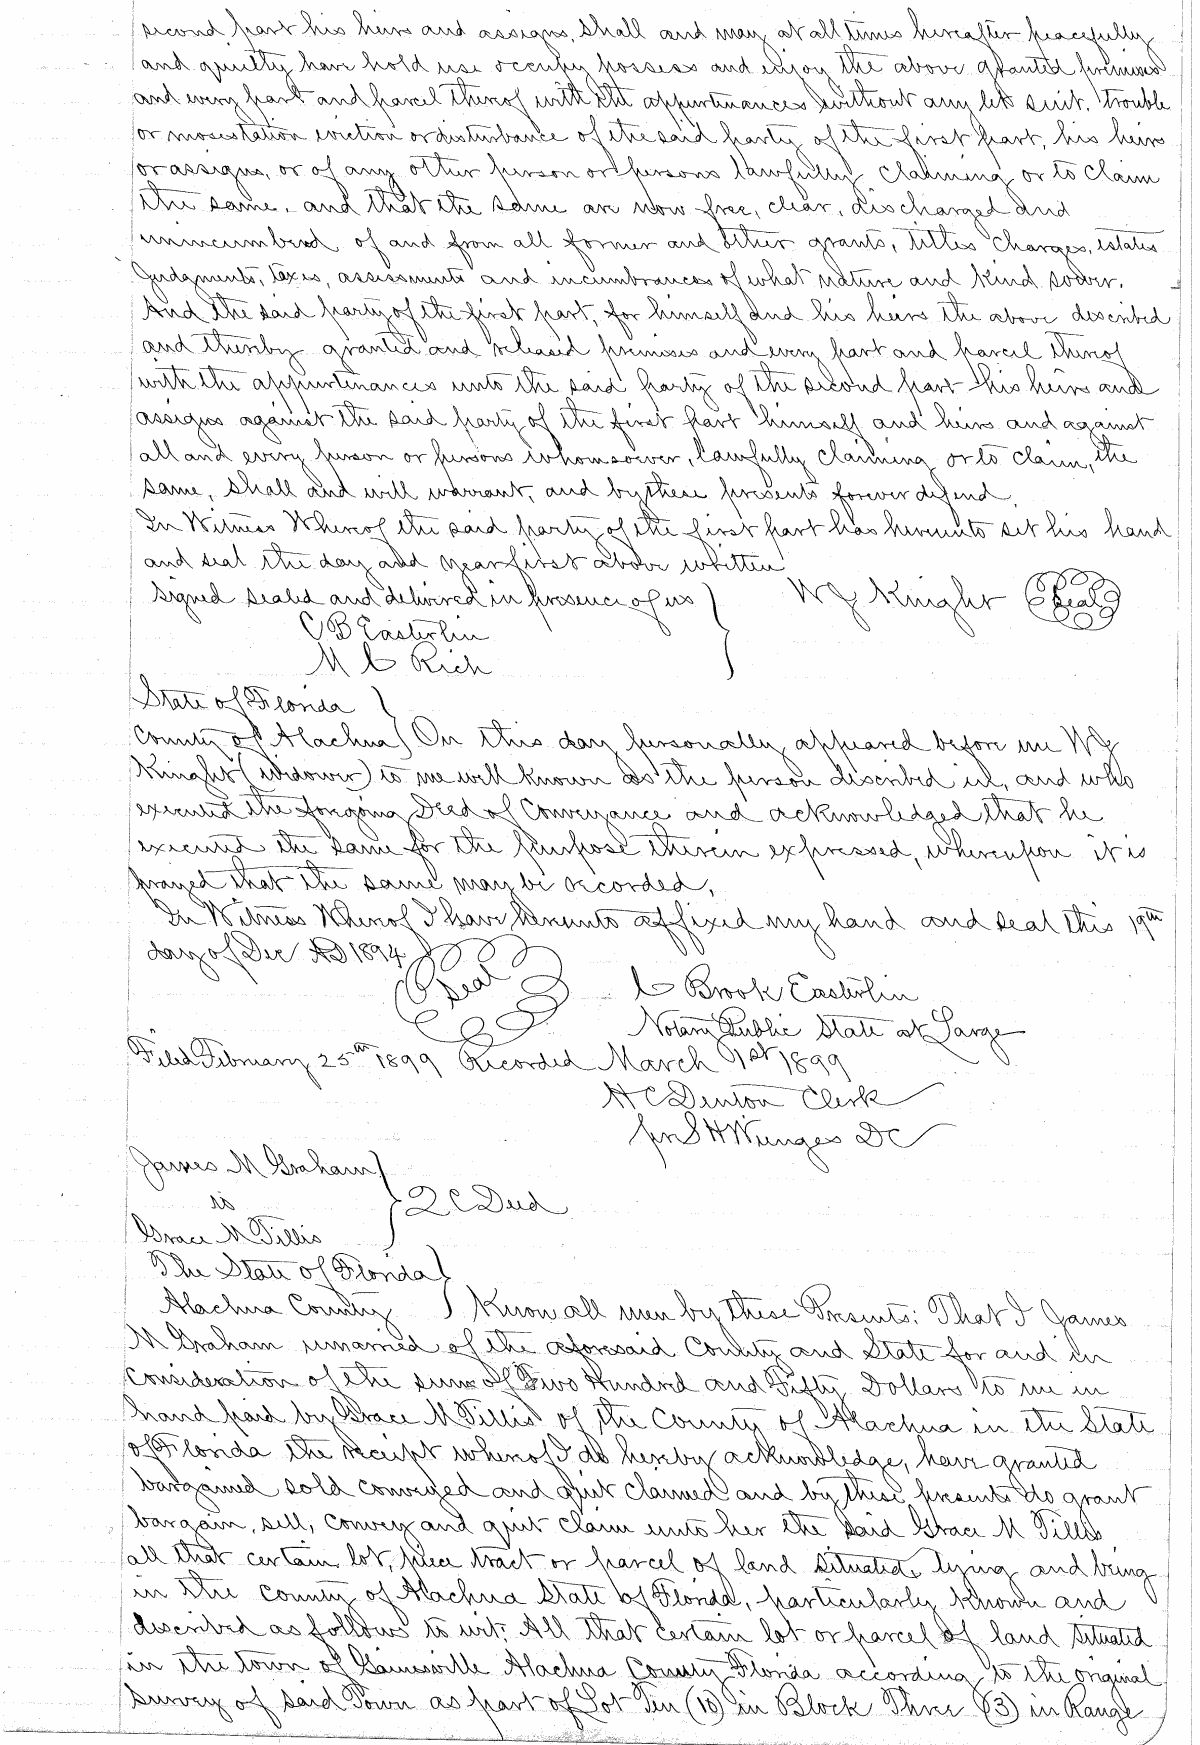 second part his heirs and assigns, shall and may at all times hereafter peacefully
and quietly have hold use occupy possess and enjoy the above granted premises
and every part and parcel thereof with the appurtenances without any let, suit, trouble
or molestation eviction or disturbance of the said party of the first part, his heirs
or assigns, or of any other person or persons lawfully claiming or to claim
the same, and that the same are now free, clear, discharged and
unincumberd of and from all former and other grants, titles charges, estates
Judgments, taxes, assessments and incumbrances of what nature and kind soever.
And the said party of the first part, for himself and his heirs the above described
and thereby granted and released premises and every part and parcel thereof
with the appurtenances unto the said party of the second part his heirs and
assigns against the said party of the first part himself and heirs and against
all and every person or persons whomsoever, lawfully claiming or to claim, the
same, shall and will warrant, and by these presents forever defend
In Witness Whereof the said party of the first part has hereunto set his hand
and seal the day and year first above written
Signed sealed and delivered in presence of us } W J Knight (Seal)
C B Easterlin
M C Rich
State of Florida }
County of Alachua } On this day personally appeared before me W J
Knight (widower) to me well known as the person described in, and who
executed the forgoing Deed of Conveyance and acknowledged that he
executed the same for the purpose therein expressed, whereupon it is
prayed that the same may be recorded,
In Witness Whereof I have hereunto affixed my hand and seal this 19th
day of Dec AD 1894
(Seal) C Brook Easterlin
Notary Public State at Large
Filed February 25th 1899 Recorded March 1st 1899
H C Denton Clerk
per S H Wienges DC
James M Graham }
to } Q C Deed
Grace M Tillis
The State of Florida }
Alachua County } Know all men by these Presents: That I James
M Graham unmarried of the aforesaid County and State for and in
consideration of the sum of Two Hundred and Fifty Dollars to me in
hand paid by Grace M Tillis of the County of Alachua in the State
of Florida the receipt whereof I do hereby acknowledge, have granted
bargained sold conveyed and quit claimed and by these presents do grant
bargain, sell, convey and quit claim unto her the said Grace M Tillis
all that certain lot, piece tract or parcel of land situated, lying and being
in the county of Alachua State of Florida, particularly known and
described as follows to wit: All that certain lot or parcel of land situated
in the town of Gainesville Alachua County Florida according to the original
survey of said Town as part of Lot Ten (10) in Block Three (3) in Range